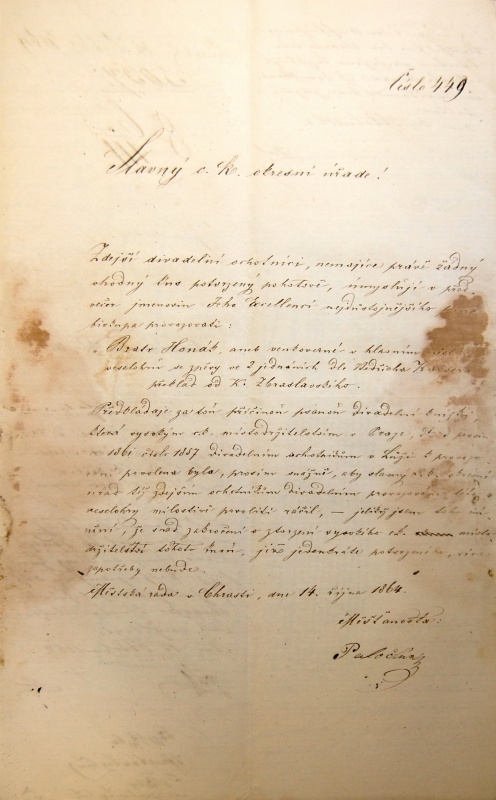 Číslo 449.
Slavný c. k. okresní úřade!
Zdejší divadelní ochotníci, nemajíce právě žádný
vhodný kus potvrzený pohotově, zamýšlejí v před-
večer jmenovin Jeho Excellencí nejdůstojnějšího
biskupa provozovati:
„Bratr Honák, aneb venkované v hlavním
veselohra se zpěvy ve 2 jednáních dle Bedřicha
překlad od K. Zbraslavského.
Předkládajíc za tou příčinou psanou divadelní knížku,
která vysokým c. k. místodržitelstvím v Praze,
1861 číslo 1857 divadelním ochotníkům v Luži k provozo-
vání povolena byla, prosíme snažně, aby slavný c. k. okresní
úřad též zdejším ochotníkům divadelním provozování této
veselohry milostivě povoliti ráčil, — jelikož jsme toho mí-
nění, že snad zakročení o stvrzení vysokého c. k. místo-
držitelství tohoto kusu, již jedenkráte potvrzeného, více
zapotřeby nebude.
Městská rada v Chrasti, dne 14. října 1864.
Měšťanosta: